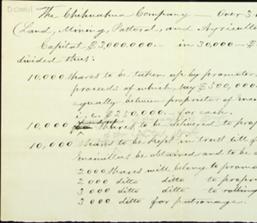 The Chihuahua Company — Over 3
(Land, Mining, Pastoral, and Agricultu
Capital £3,000,000 — in 30,000 — £
divided thus:
10,000 shares to be taken up by promoter
proceeds of which, say £500,000
equally between proprietor of
i.e. £250,000 for each.
10,000 shares to be delivered to prop
10,000 shares to be kept in trust till
be obtained and to be
2,000 shares will belong to promo
2,000 ditto ditto to prop
3,000 ditto ditto to
3,000 for patronage.